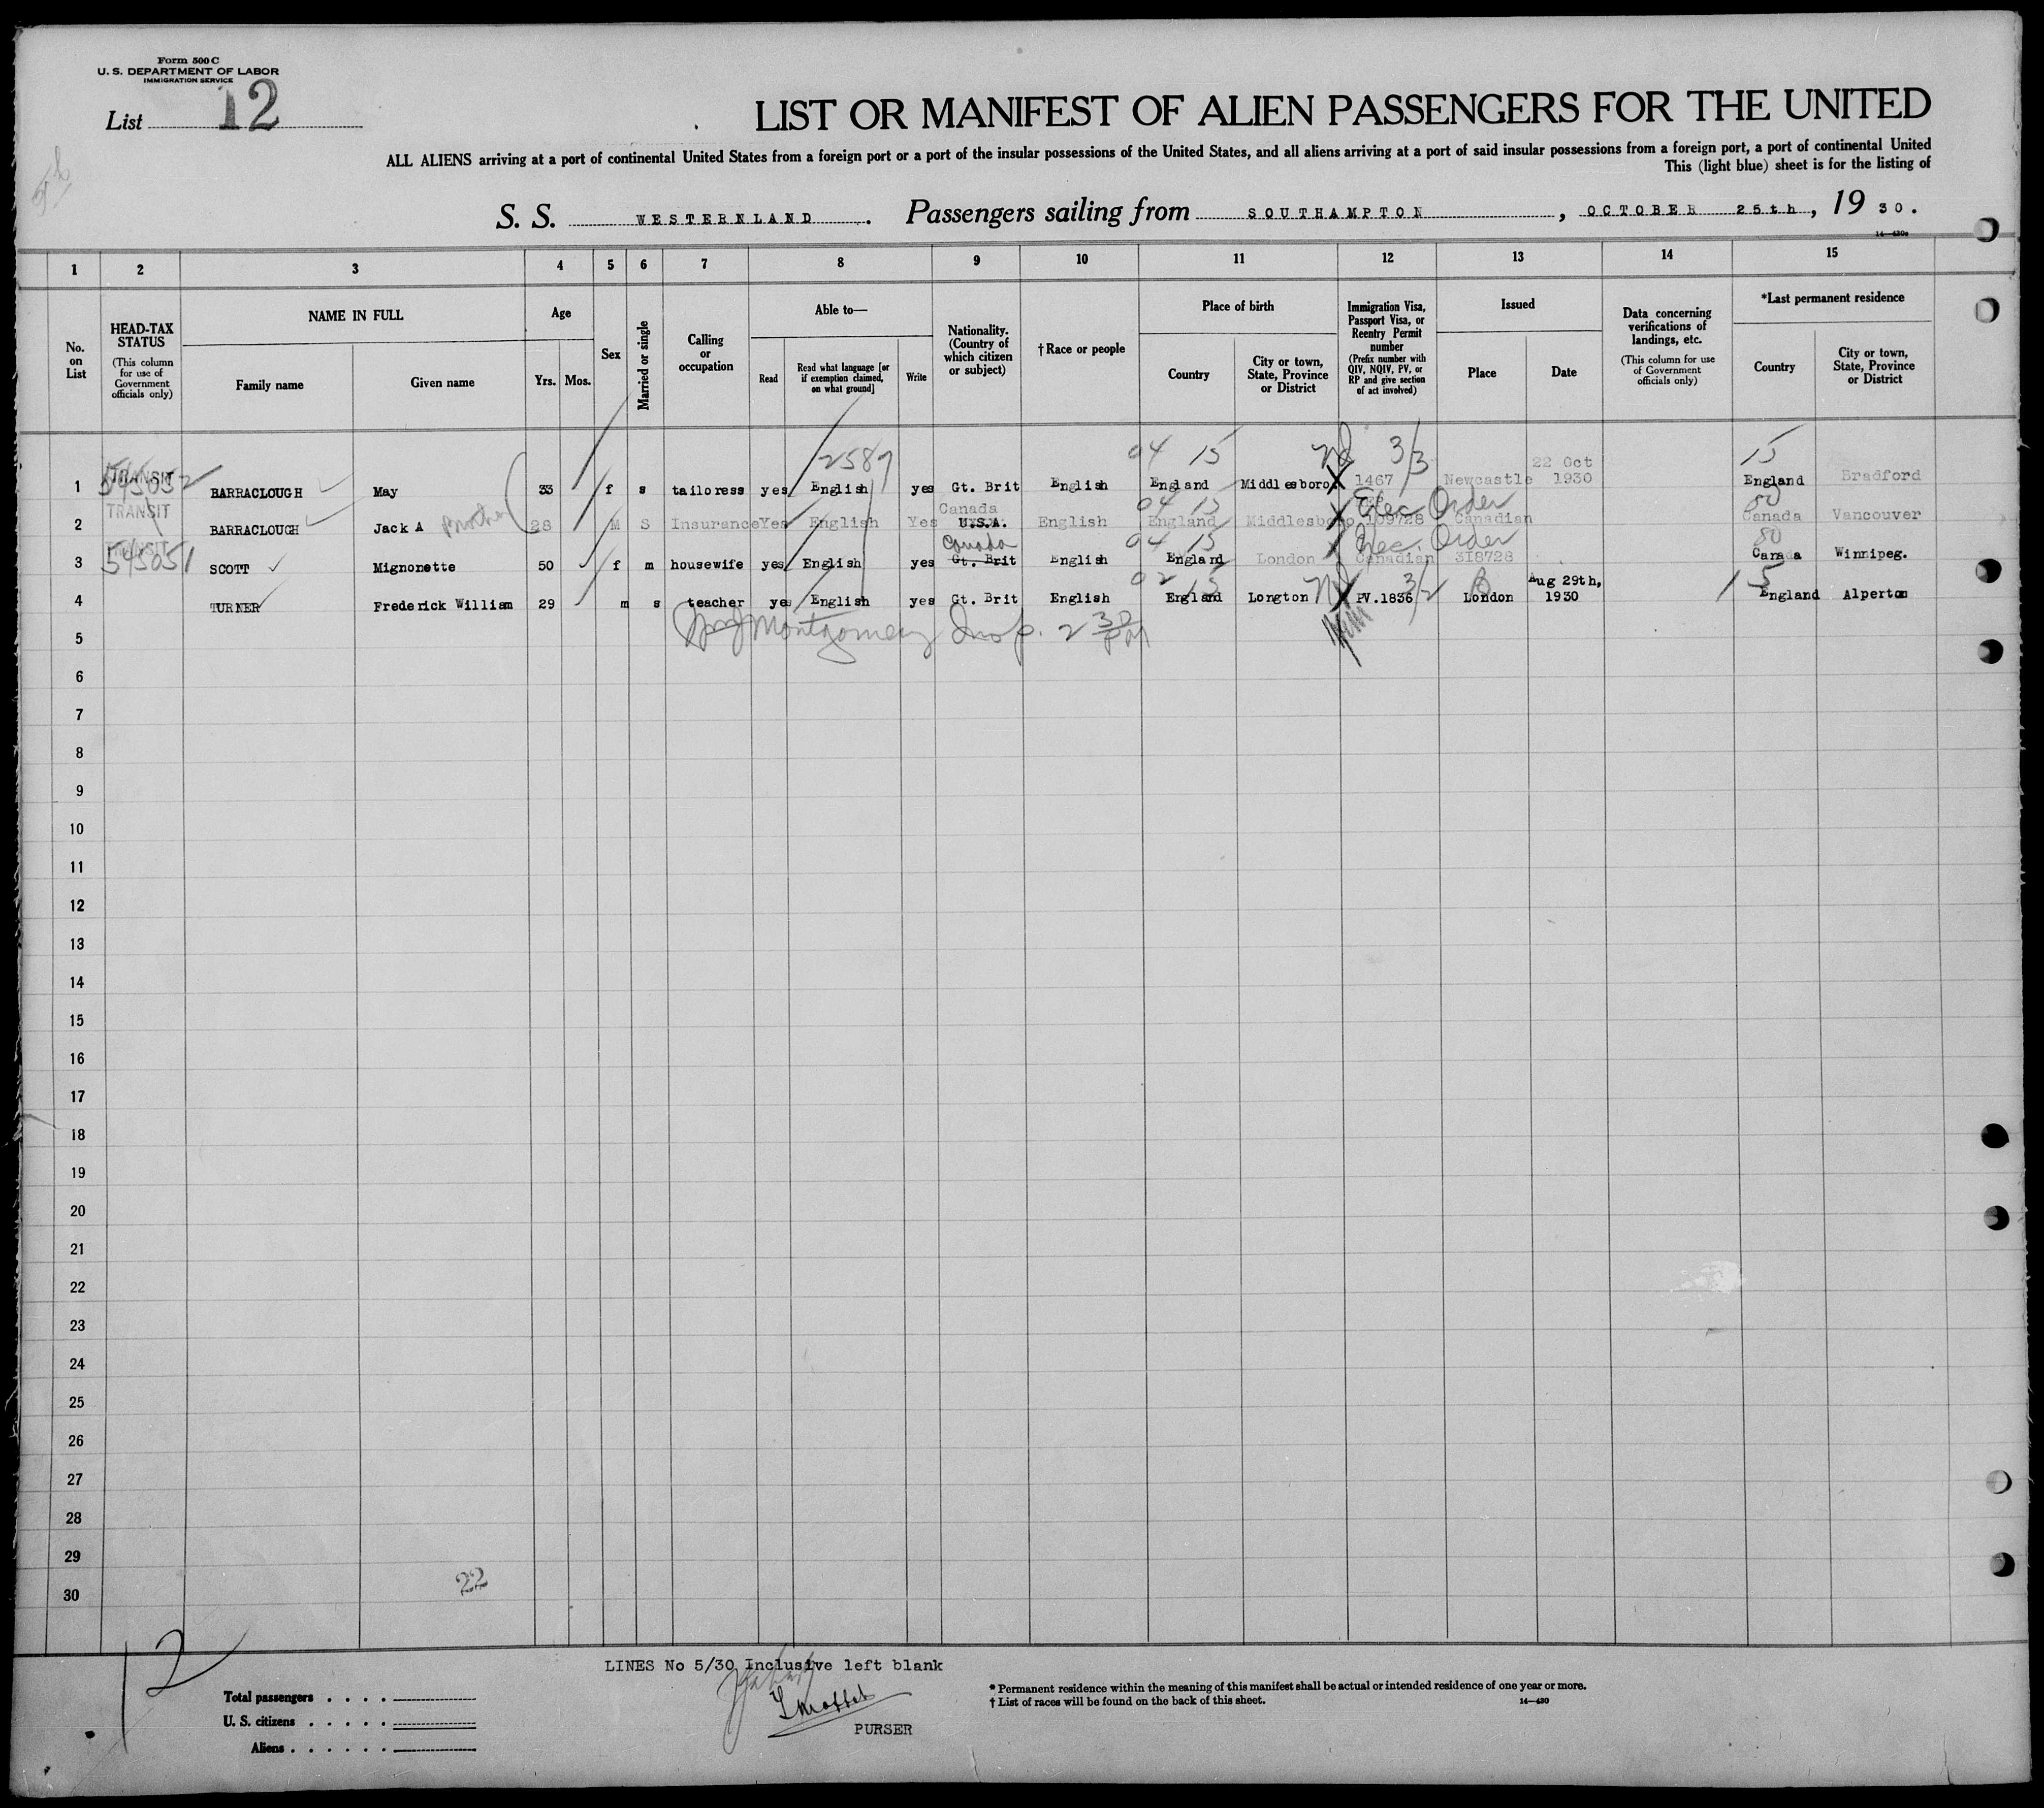 Form 500 C
U. S. DEPARTMENT OF LABOR
IMMIGRATION SERVICE
List 12
LIST OR MANIFEST OF ALIEN PASSENGERS FOR THE UNITED
ALL ALIENS arriving at a port of continental United States from a foreign port or a port of the insular possessions of the United States, and all aliens arriving at a port of said insular possessions from a foreign port, a port of continental United
This (light blue) sheet is for the listing of
5th
S. S. WESTERNLAND. Passengers sailing from SOUTHAMPTON, OCTOBER 25th, 19 30.
14—430a
1 2 3 4 5 6 7 8 9 10 11 12 13 14 15
No. on List
HEAD-TAX STATUS (This column for use of Government officials only)
NAME IN FULL
Family name
Given name
Age
Yrs. Mos.
Sex
Married or single
Calling or occupation
Able to—
Read
Read what language [or if exemption claimed, on what ground]
Write
Nationality. (Country of which citizen or subject)
† Race or people
Place of birth
Country
City or town, State, Province or District
Immigration Visa, Passport Visa, or Reentry Permit number (Prefix number with QIV, NQIV, PV, or RP and give section of act involved)
Issued
Place
Date
Data concerning verifications of landings, etc. (This column for use of Government officials only)
*Last permanent residence
Country
City or town, State, Province or District
2587 04 15 3/3 22 Oct 15
1 TRANSIT 545052 BARRACLOUGH May 33 f s tailoress yes English yes Gt. Brit English England Middlesboro. 1467 Newcastle 1930 England Bradford
TRANSIT Canada 04 15 Exec Order 80
2 BARRACLOUGH Jack A brother 28 M S Insurance Yes English Yes U.S.A. English England Middlesboro 109728 Canadian Canada Vancouver
TRANSIT Canada 04 15 Exec. Order 80
3 545051 SCOTT Mignonette 50 f m housewife yes English yes Gt. Brit English England London Canadian 318728 Canada Winnipeg.
02 15 3/2 Aug 29th, 15
4 TURNER Frederick William 29 m s teacher yes English yes Gt. Brit English England Longton PV.1836 London 1930 England Alperton
Montgomery Insp. 2 30 PM
5
6
7
8
9
10
11
12
13
14
15
16
17
18
19
20
21
22
23
24
25
26
27
28
29
30
22
12
LINES No 5/30 Inclusive left blank
Total passengers
U. S. citizens
Aliens
PURSER
* Permanent residence within the meaning of this manifest shall be actual or intended residence of one year or more.
† List of races will be found on the back of this sheet. 14—430